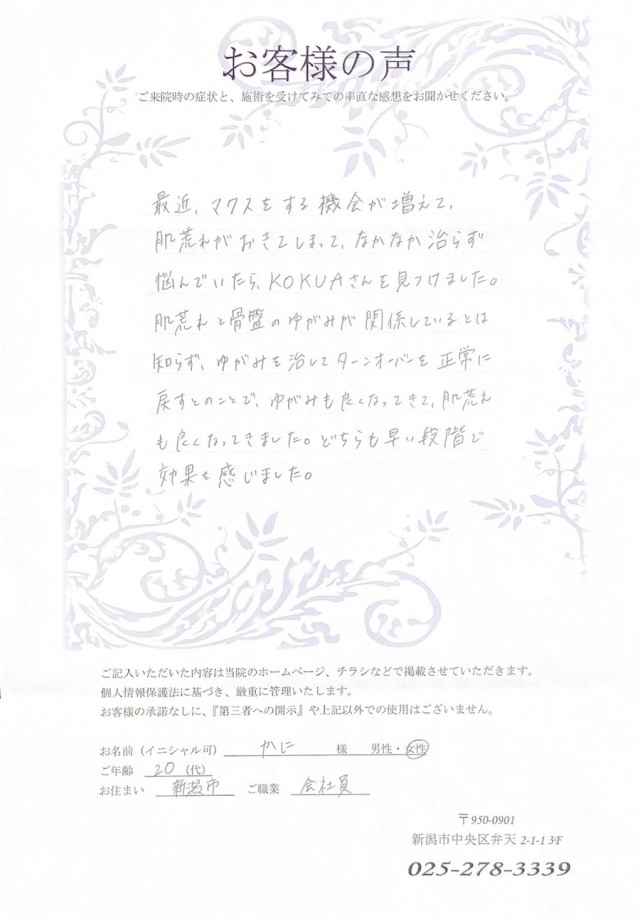 お客様の声
ご来院時の症状と、施術を受けてみての率直な感想をお聞かせください。
最近、マクスをする機会が増えて、
肌荒れがおきてしまって、なかなか治らず
悩んでいたら、KOKUAさんを見つけました。
肌荒れと骨盤のゆがみが関係しているとは
知らず、ゆがみを治してターンオーバーを正常に
戻すとのことで、ゆがみも良くなってきて、肌荒れ
も良くなってきました。どちらも早い段階で
効果を感じました。
ご記入いただいた内容は当院のホームページ、チラシなどで掲載させていただきます。
個人情報保護法に基づき、厳重に管理いたします。
お客様の承諾なしに、『第三者への開示』や上記以外での使用はございません。
お名前（イニシャル可） かに 様 男性・女性
ご年齢 20（代）
お住まい 新潟市 ご職業 会社員
〒950-0901
新潟市中央区弁天 2-1-1 3F
025-278-3339